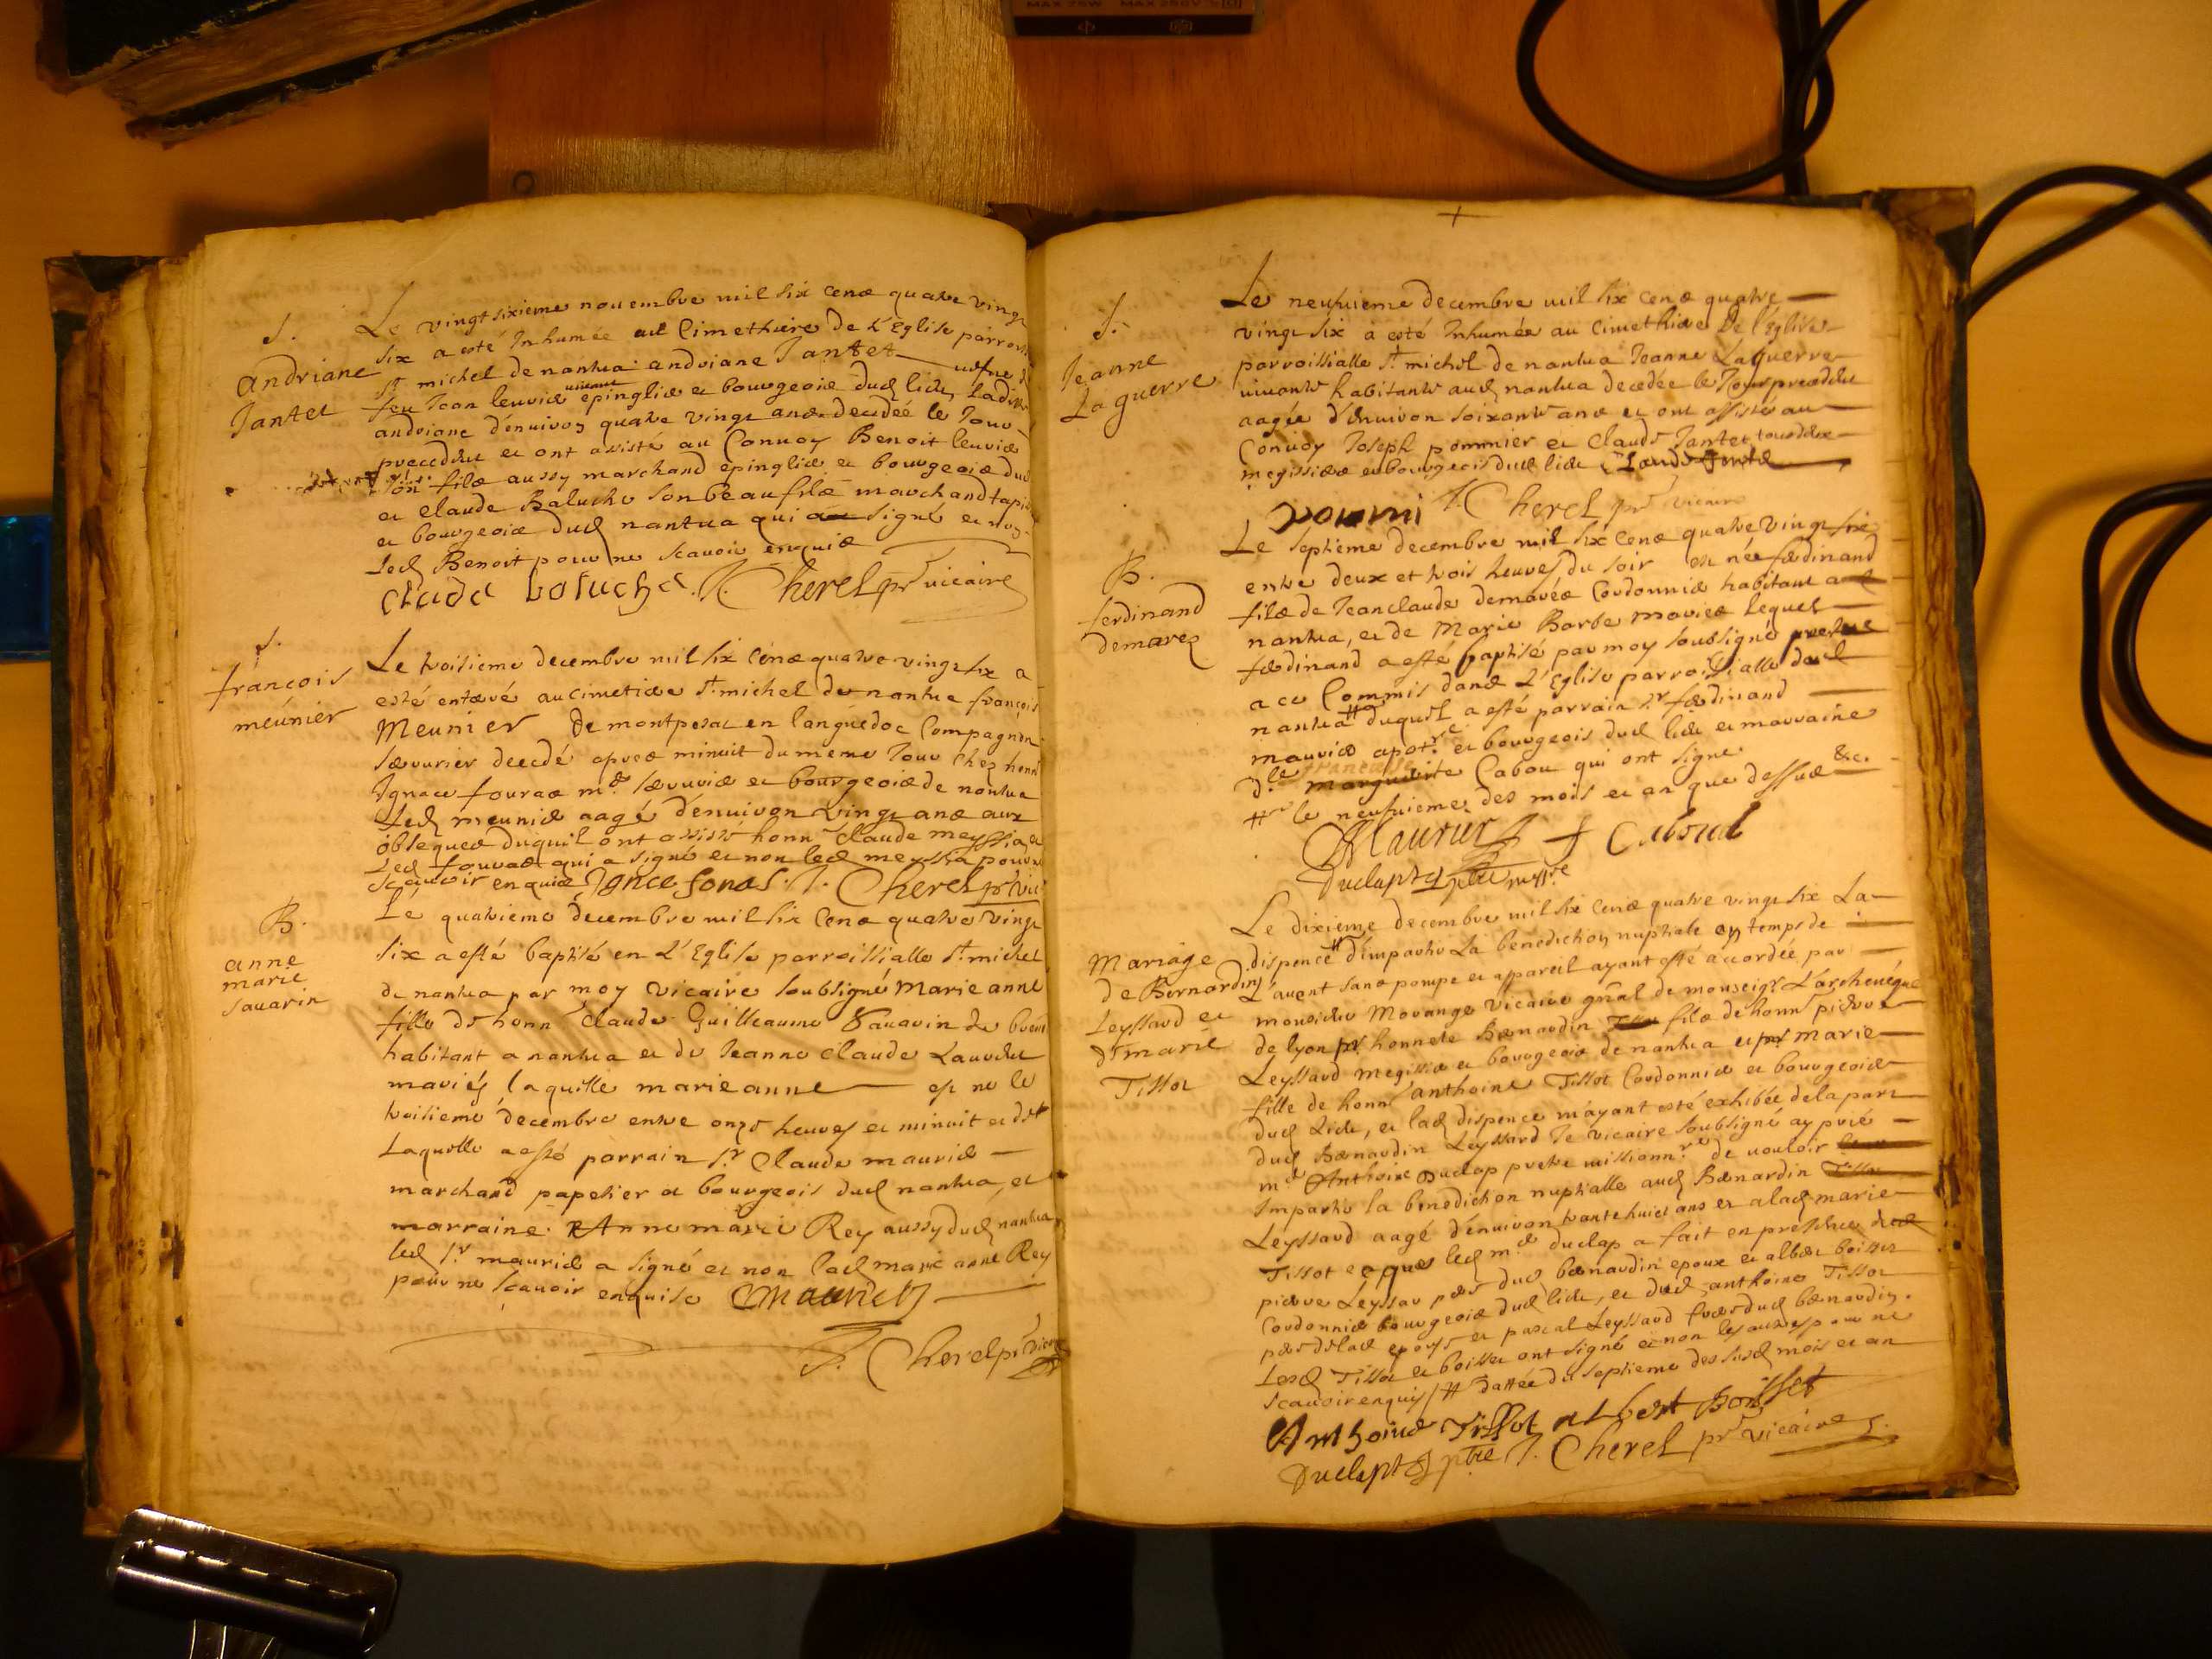 MAX 75W MAX 250V
S.
Andriane
Jantet
Le vingt sixieme novembre mil six cens quatre vingt
six a esté Inhumée au Cimethiere de L'Eglise parrois
St michel de nantua andriane Jantet vefve de
feu Jean leuvier vivant epinglier et bourgeois dud lieu, Ladite
andriane d'environ quatre vingt ans decedée le Jour
precedent et ont assisté au Convoy Benoit leuvier
son fils aussy marchand epinglier et bourgeois dud
et claude Baluche son beaufils marchand tapis
et bourgeois dud nantua qui a signé et non
Led Benoit pour ne scavoir enquis
Claude baluche. J. Cherel pr vicaire
S.
françois
meunier
Le troisieme decembre mil six cens quatre vingt six a
esté enterré au cimetiere St michel de nantua françois
Meunier de montpesac en languedoc Compagnon
serrurier decedé apres minuit du meme Jour chez honn
Ignace fouras md serrurier et bourgeois de nantua
Led meunier aagé d'environ vingt ans aux
obseques duquil ont assisté honn claude meyssia et
Led fouras qui a signé et non led meyssia pour ne
scavoir enquis Ignce fonas. J. Cherel pr vic
B.
anne
marie
savarin
Le quatrieme decembre mil six cens quatre vingt
six a esté baptisé en L'Eglise parroissialle St michel
de nantua par moy vicaire soubsigné Marie anne
fille de honn claude Guilleaume Savarin de
habitant a nantua et de Jeanne claude
mariés laquille marie anne est ne le
troisieme decembre entre onze heures et minuit et de
Laquelle a esté parrain Sr Claude maurier
marchand papetier et bourgeois dud nantua, et
marraine Anne marie Rey aussy dud nantua
led Sr maurier a signé et non lad marie anne Rey
pour ne scavoir enquise CMaurier
J. Cherel pr vicaire
S.
Jeanne
La guerre
Le neufvieme decembre mil six cens quatre
vingt six a esté Inhumée au cimethiere de l'Eglise
parroissialle St michel de nantua Jeanne Laguerre
vivante habitante aud nantua decedée le Jour precedent
aagée d'environ soixante ans et ont assisté au
Convoy Joseph pommier et Claude Jantet tous deux
megissiers et bourgeois dud lieu
pommi J. Cherel pr vicaire
B.
ferdinand
demarez
Le septieme decembre mil six cens quatre vingt six
entre deux et trois heures du soir est née ferdinand
fils de Jeanclaude demarés Cordonnier habitant a
nantua, et de Marie Barbe mariés lequel
ferdinand a esté baptisé par moy soubsigné prestre
a ce Commis dans L'Eglise parroissialle dud
nantua # duquel a esté parrain Sr ferdinand
maurier apotre et bourgeois dud lieu et marraine
dlle francoise marguerite Cabou qui ont signe.
# le neufvieme des mois et an que dessus &c.
Maurier f Caboud
Duclapt ptre missre
Mariage
de Bernardin
Leyssard et
de marie
Tissot
Le dixieme decembre mil six cens quatre vingt six La
dispence # d'impartir La benediction nuptiale en temps de
L'avent sans pompe et appareil ayant esté accordée par
monsieur Morange vicaire gnal de monseigr L'archevéque
de lyon pr honneste Bernardin fils de honn pierre
Leyssard megissier et bourgeois de nantua et pr marie
fille de honn anthoine Tissot Cordonnier et bourgeois
dud Lieu, et lad dispence m'ayant esté exhibée de la part
dud Bernardin Leyssard Je vicaire soubsigné ay prié
mre Anthoine Duclap pretre missionnre de vouloir
Impartir la benediction nuptialle aud Bernardin
Leyssard aagé d'environ trante huict ans et a lad marie
Tissot ce que led mre duclap a fait en presence de
pierre Leyssar pere dud bernardin epoux et alber boisset
Cordonnier bourgeois dud lieu, et dud anthoine Tissot
pere de lad epouse et pascal Leyssard frere dud bernardin.
Lesd Tissot et boisset ont signé et non les autres pour ne
scavoir enquis / # dattée du septieme des susd mois et an
Anthoine Tissot albert Boisset
Duclapt ptre J. Cherel pr vicaire